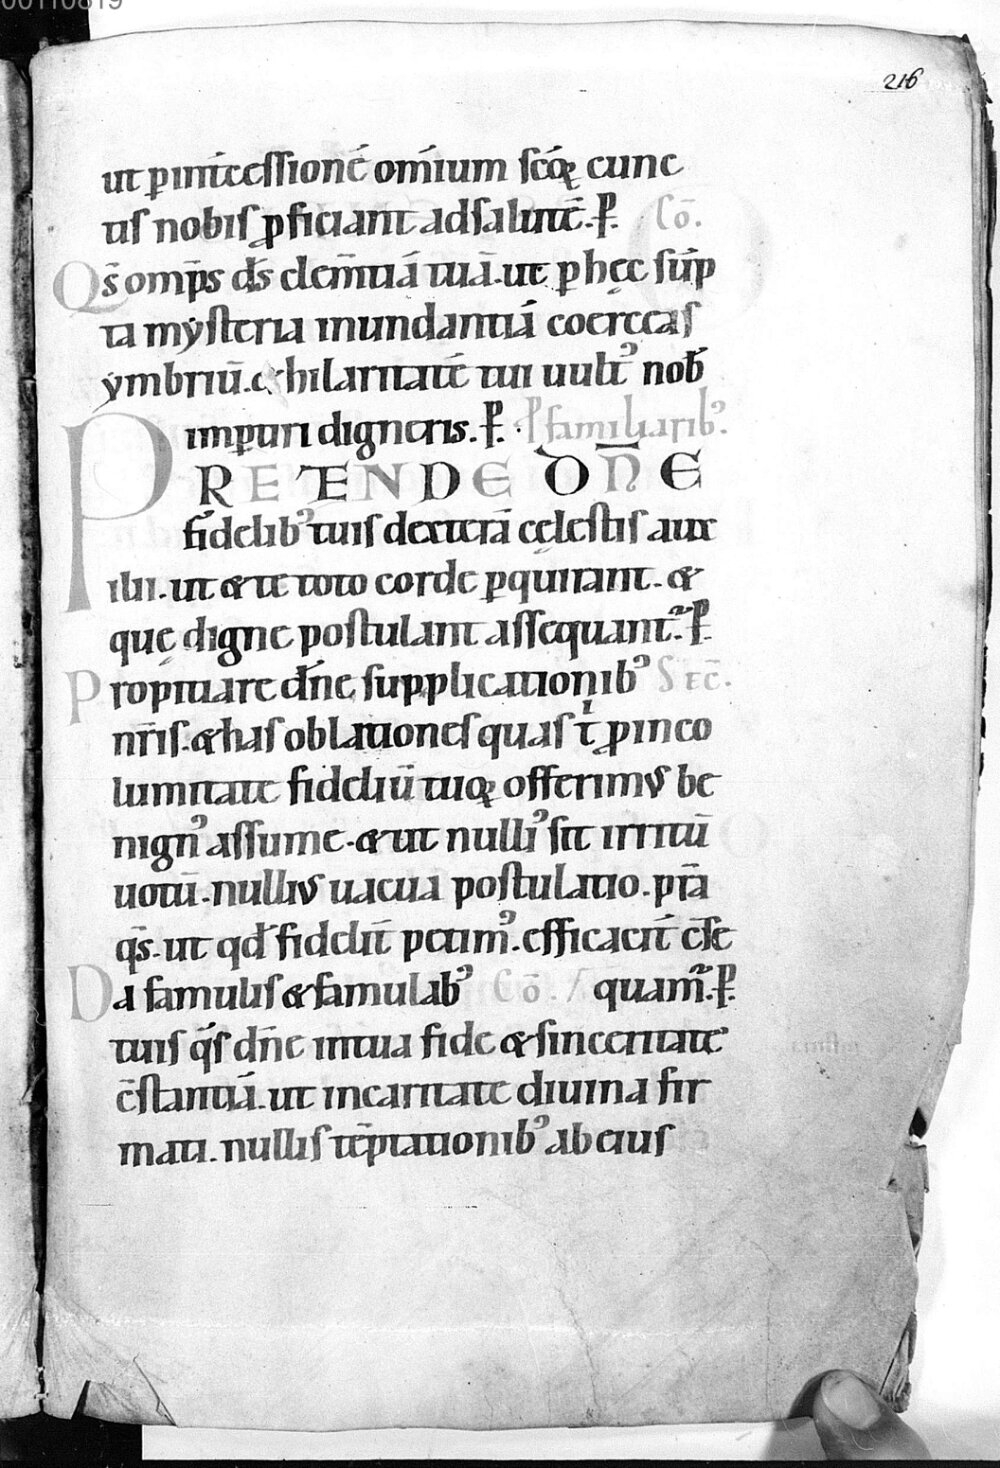 00110819
216
ut p int̄cessionē om̄ium sc̄oꝝ cunc
tis nobis ꝓficiant ad salutē. P̄. Cō.
Qs̄ omp̄s ds̄ clem̄tiā tuā. ut ꝑ hęc sūp
ta mẏsteria inundantiā coerceas
ẏmbriū. & hilaritatē tui uultꝰ nob̄
impꝑtiri digneris. P̄. P̄ familiaribꝰ.
PRETENDE DN̄E
fidelibꝰ tuis dexterā cęlestis aux
ilii. ut & te toto corde ꝑquirant. &
quę digne postulant assequantᷣ. P̄.
Propitiare dn̄e supplicationibꝰ SEC̄.
nr̄is. & has oblationes quas t̄ ꝓ inco
lumitate fideliū tuoꝝ offerimus be
nignꝰ assume. & ut nulliꝰ sit irritū
uotū. nullius uacua postulatio. p̄ta
qs̄. ut qd̄ fidelit̄ petimꝰ. efficacit̄ c̄se
Da famulis & famulabꝰ Cō. quamᷣ. P̄.
tuis qs̄ dn̄e in tua fide & sinceritate
c̄stantiā. ut in caritate diuina fir
mati. nullis tēptationibꝰ ab eius